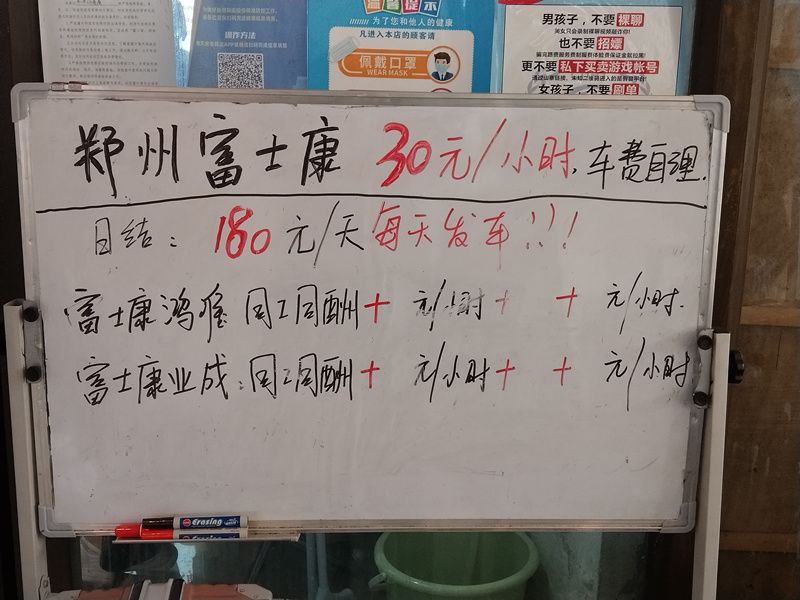 操作方法
温馨提示
为了您和他人的健康
凡进入本店的顾客请
佩戴口罩
WEAR MASK
男孩子，不要裸聊
美女只会录制裸聊视频敲诈你！
也不要招嫖
更不要私下买卖游戏帐号
女孩子，不要刷单
郑州富士康 30元/小时，车费自理.
日结：180元/天 每天发车!!!
富士康鸿 同工同酬+ 元/小时+ + 元/小时.
富士康业成：同工同酬+ 元/小时+ + 元/小时
Erasing
Erasing